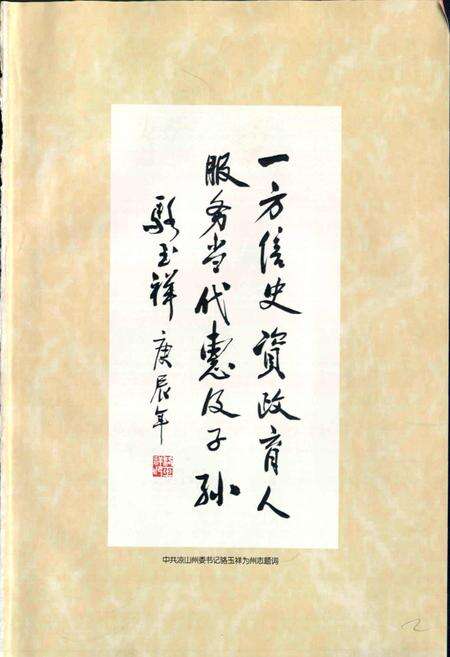 一方信史资政育人
服务当代惠及子孙
骆玉祥 庚辰年
中共凉山州委书记骆玉祥为州志题词
2